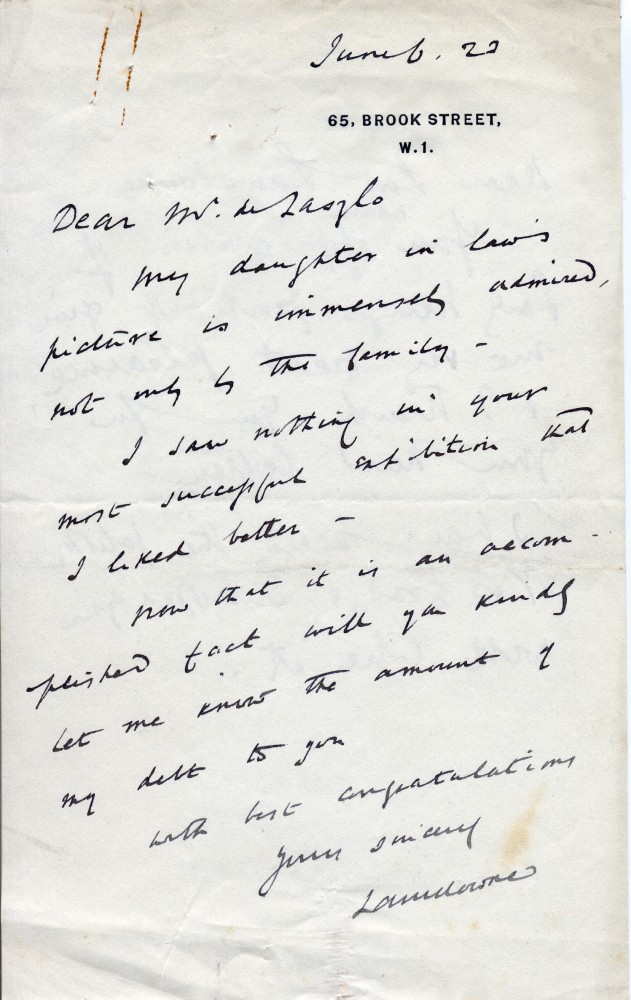 June 6. 23
65, BROOK STREET,
W.1.
Dear Mr. de Laszlo
my daughter in law's
picture is immensely admired,
not only by the family -
I saw nothing in your
most successful exhibition that
I liked better -
now that it is an accom-
plished fact will you kindly
let me know the amount of
my debt to you
with best congratulations
yours sincerely
Lansdowne